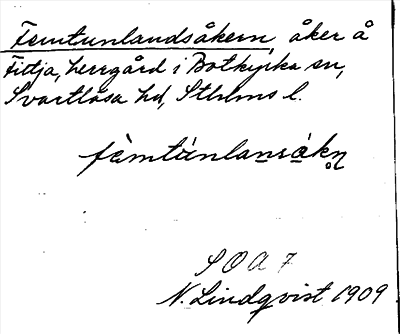 Femtunlandsåkern, åker å
Fittja, herrgård i Botkyrka sn,
Svartlösa hd, Sthlms l.
fèmtúnlansàkn̥
S O A 7
N. Lindqvist 1909